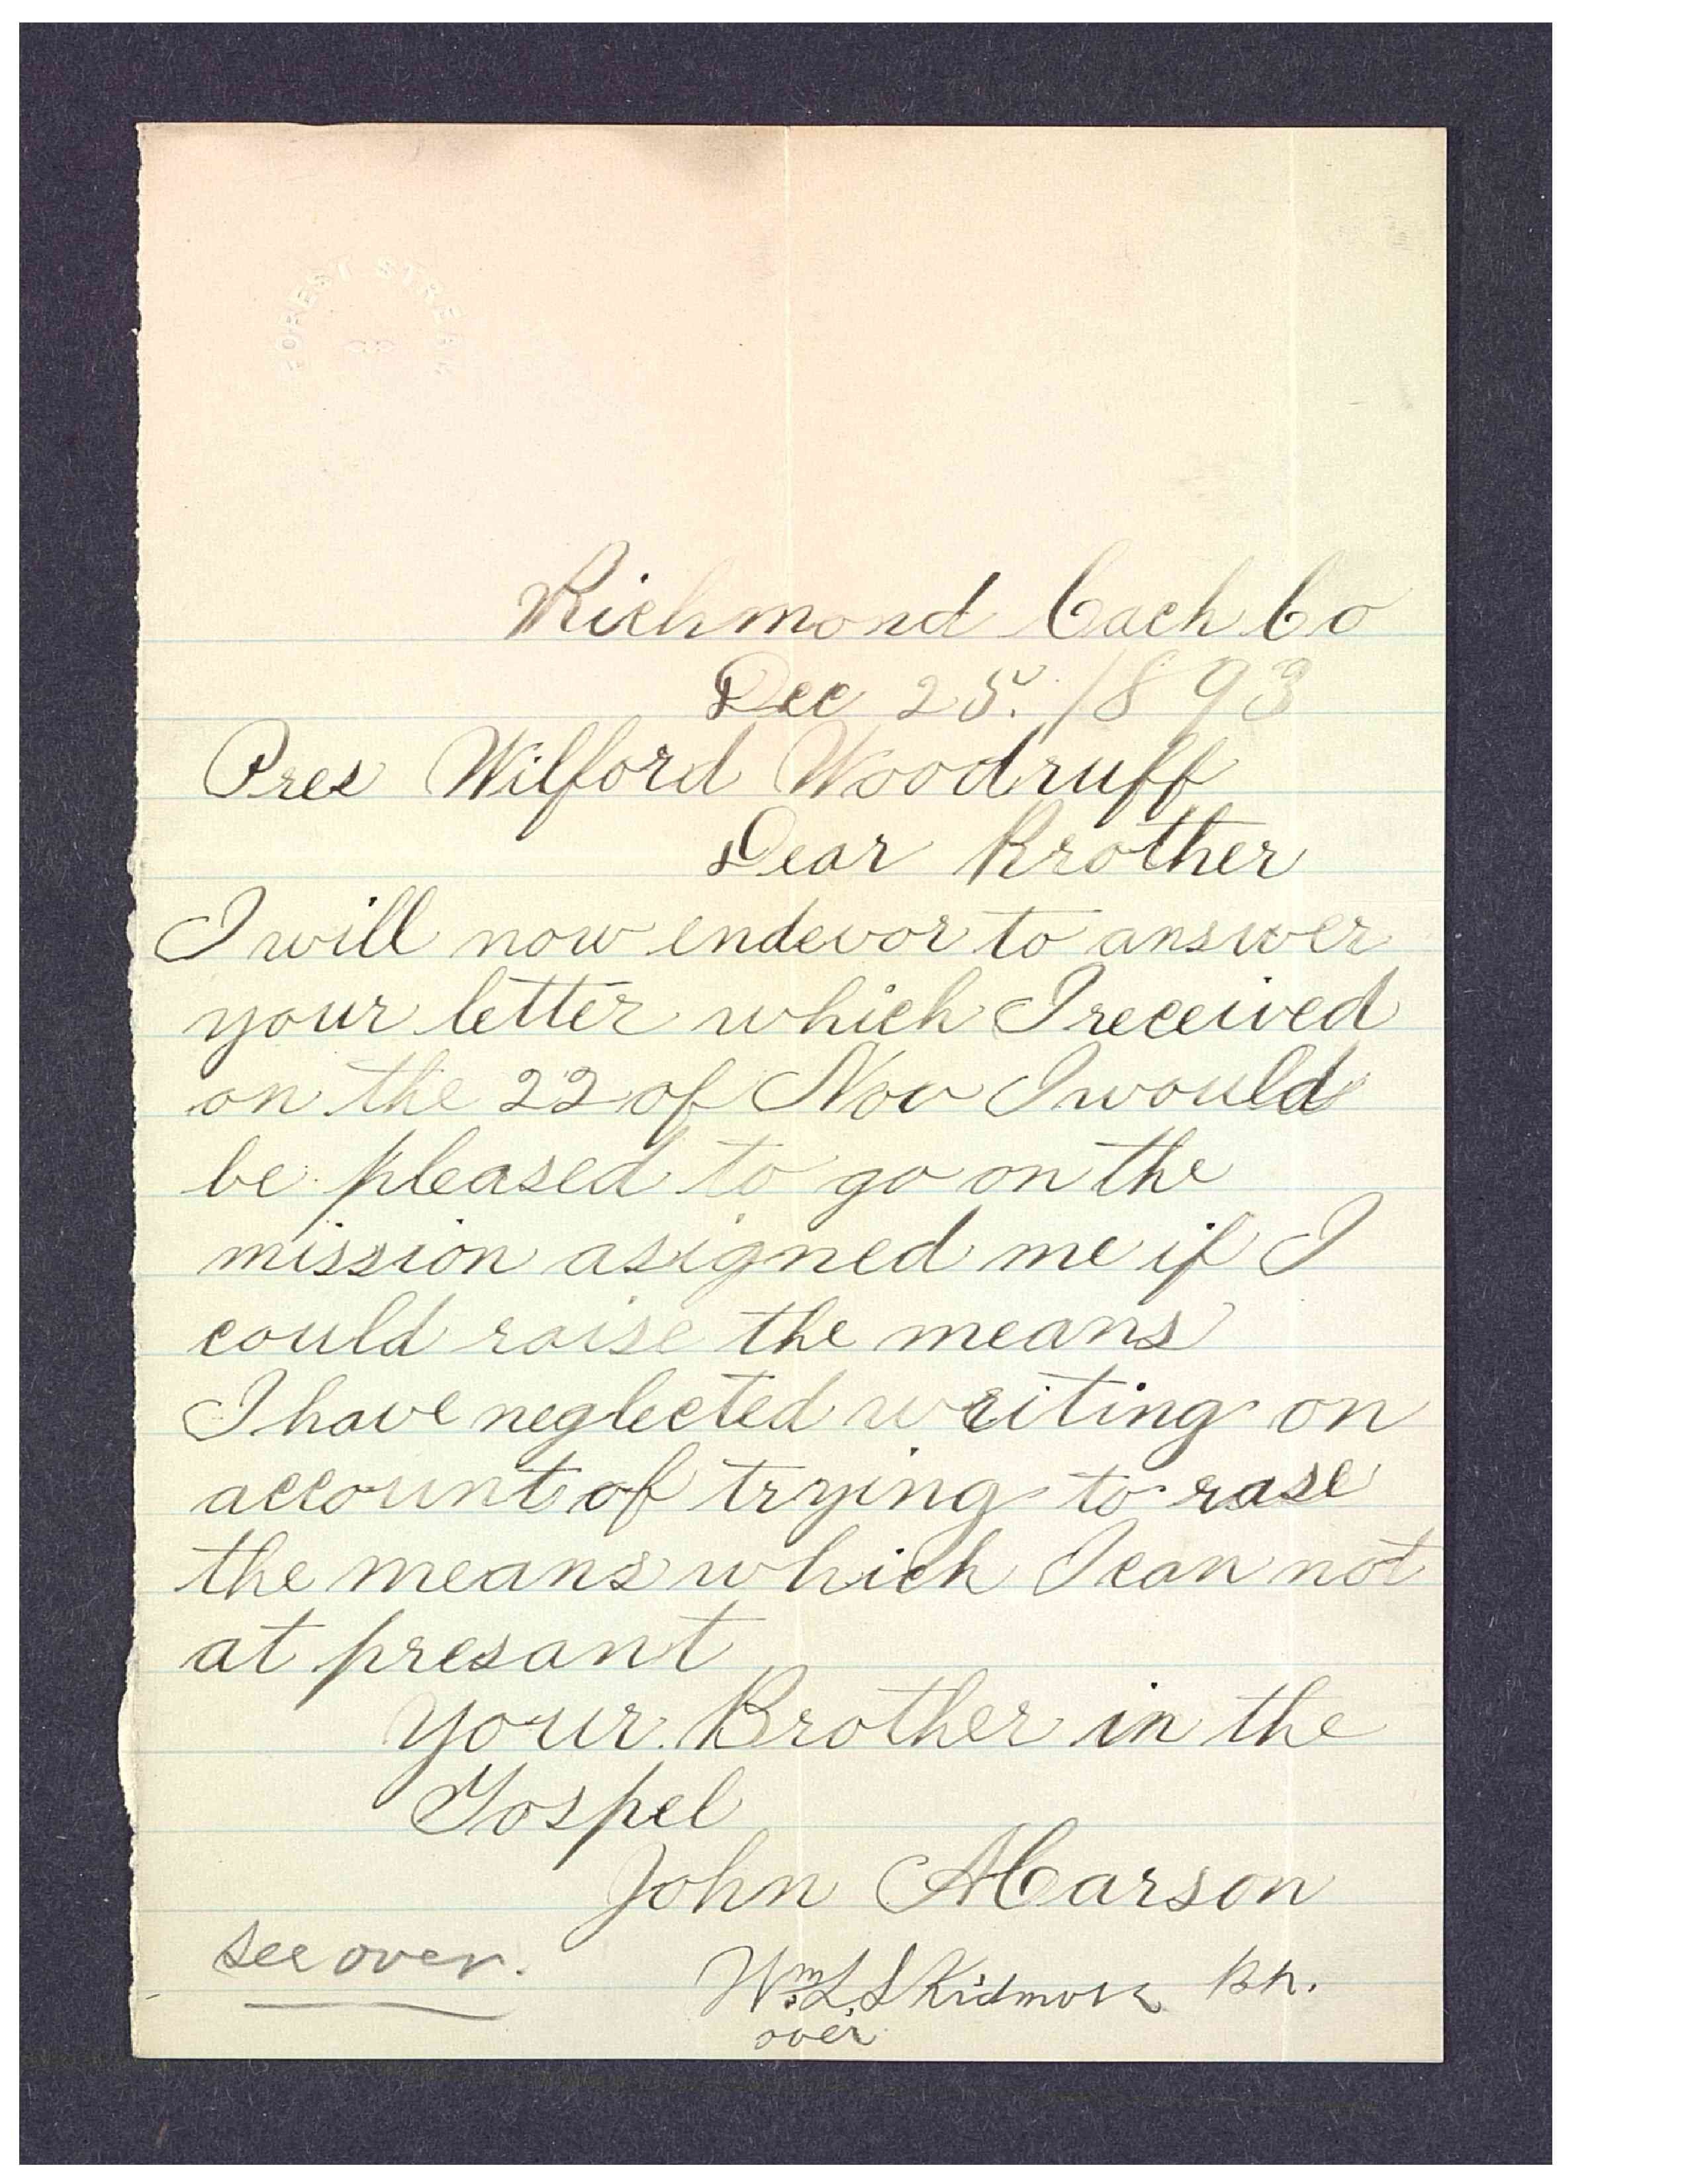 FOREST STREAM
Richmond Cach Co
Dec 25. 1893
Pres Wilford Woodruff
Dear Brother
I will now endevor to answer
your letter which I received
on the 22 of Nov I would
be pleased to go on the
mission asigned me if I
could raise the means
I have neglected writing on
account of trying to rase
the means which I can not
at presant
your Brother in the
Gospel
John A Carson
see over.
Wm. L. Skidmore Bp.
over